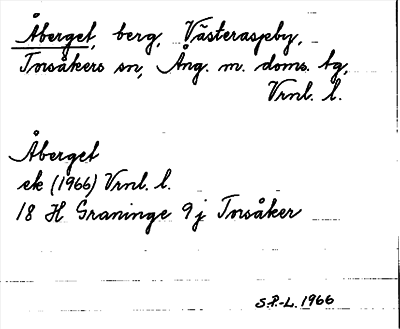 Åberget, berg, Västeraspby,
Torsåkers sn, Ång. m. doms. tg,
Vrnl. l.
Åberget
ek (1966) Vrnl. l.
18 H Graninge 9 j Torsåker
S.P.-L. 1966